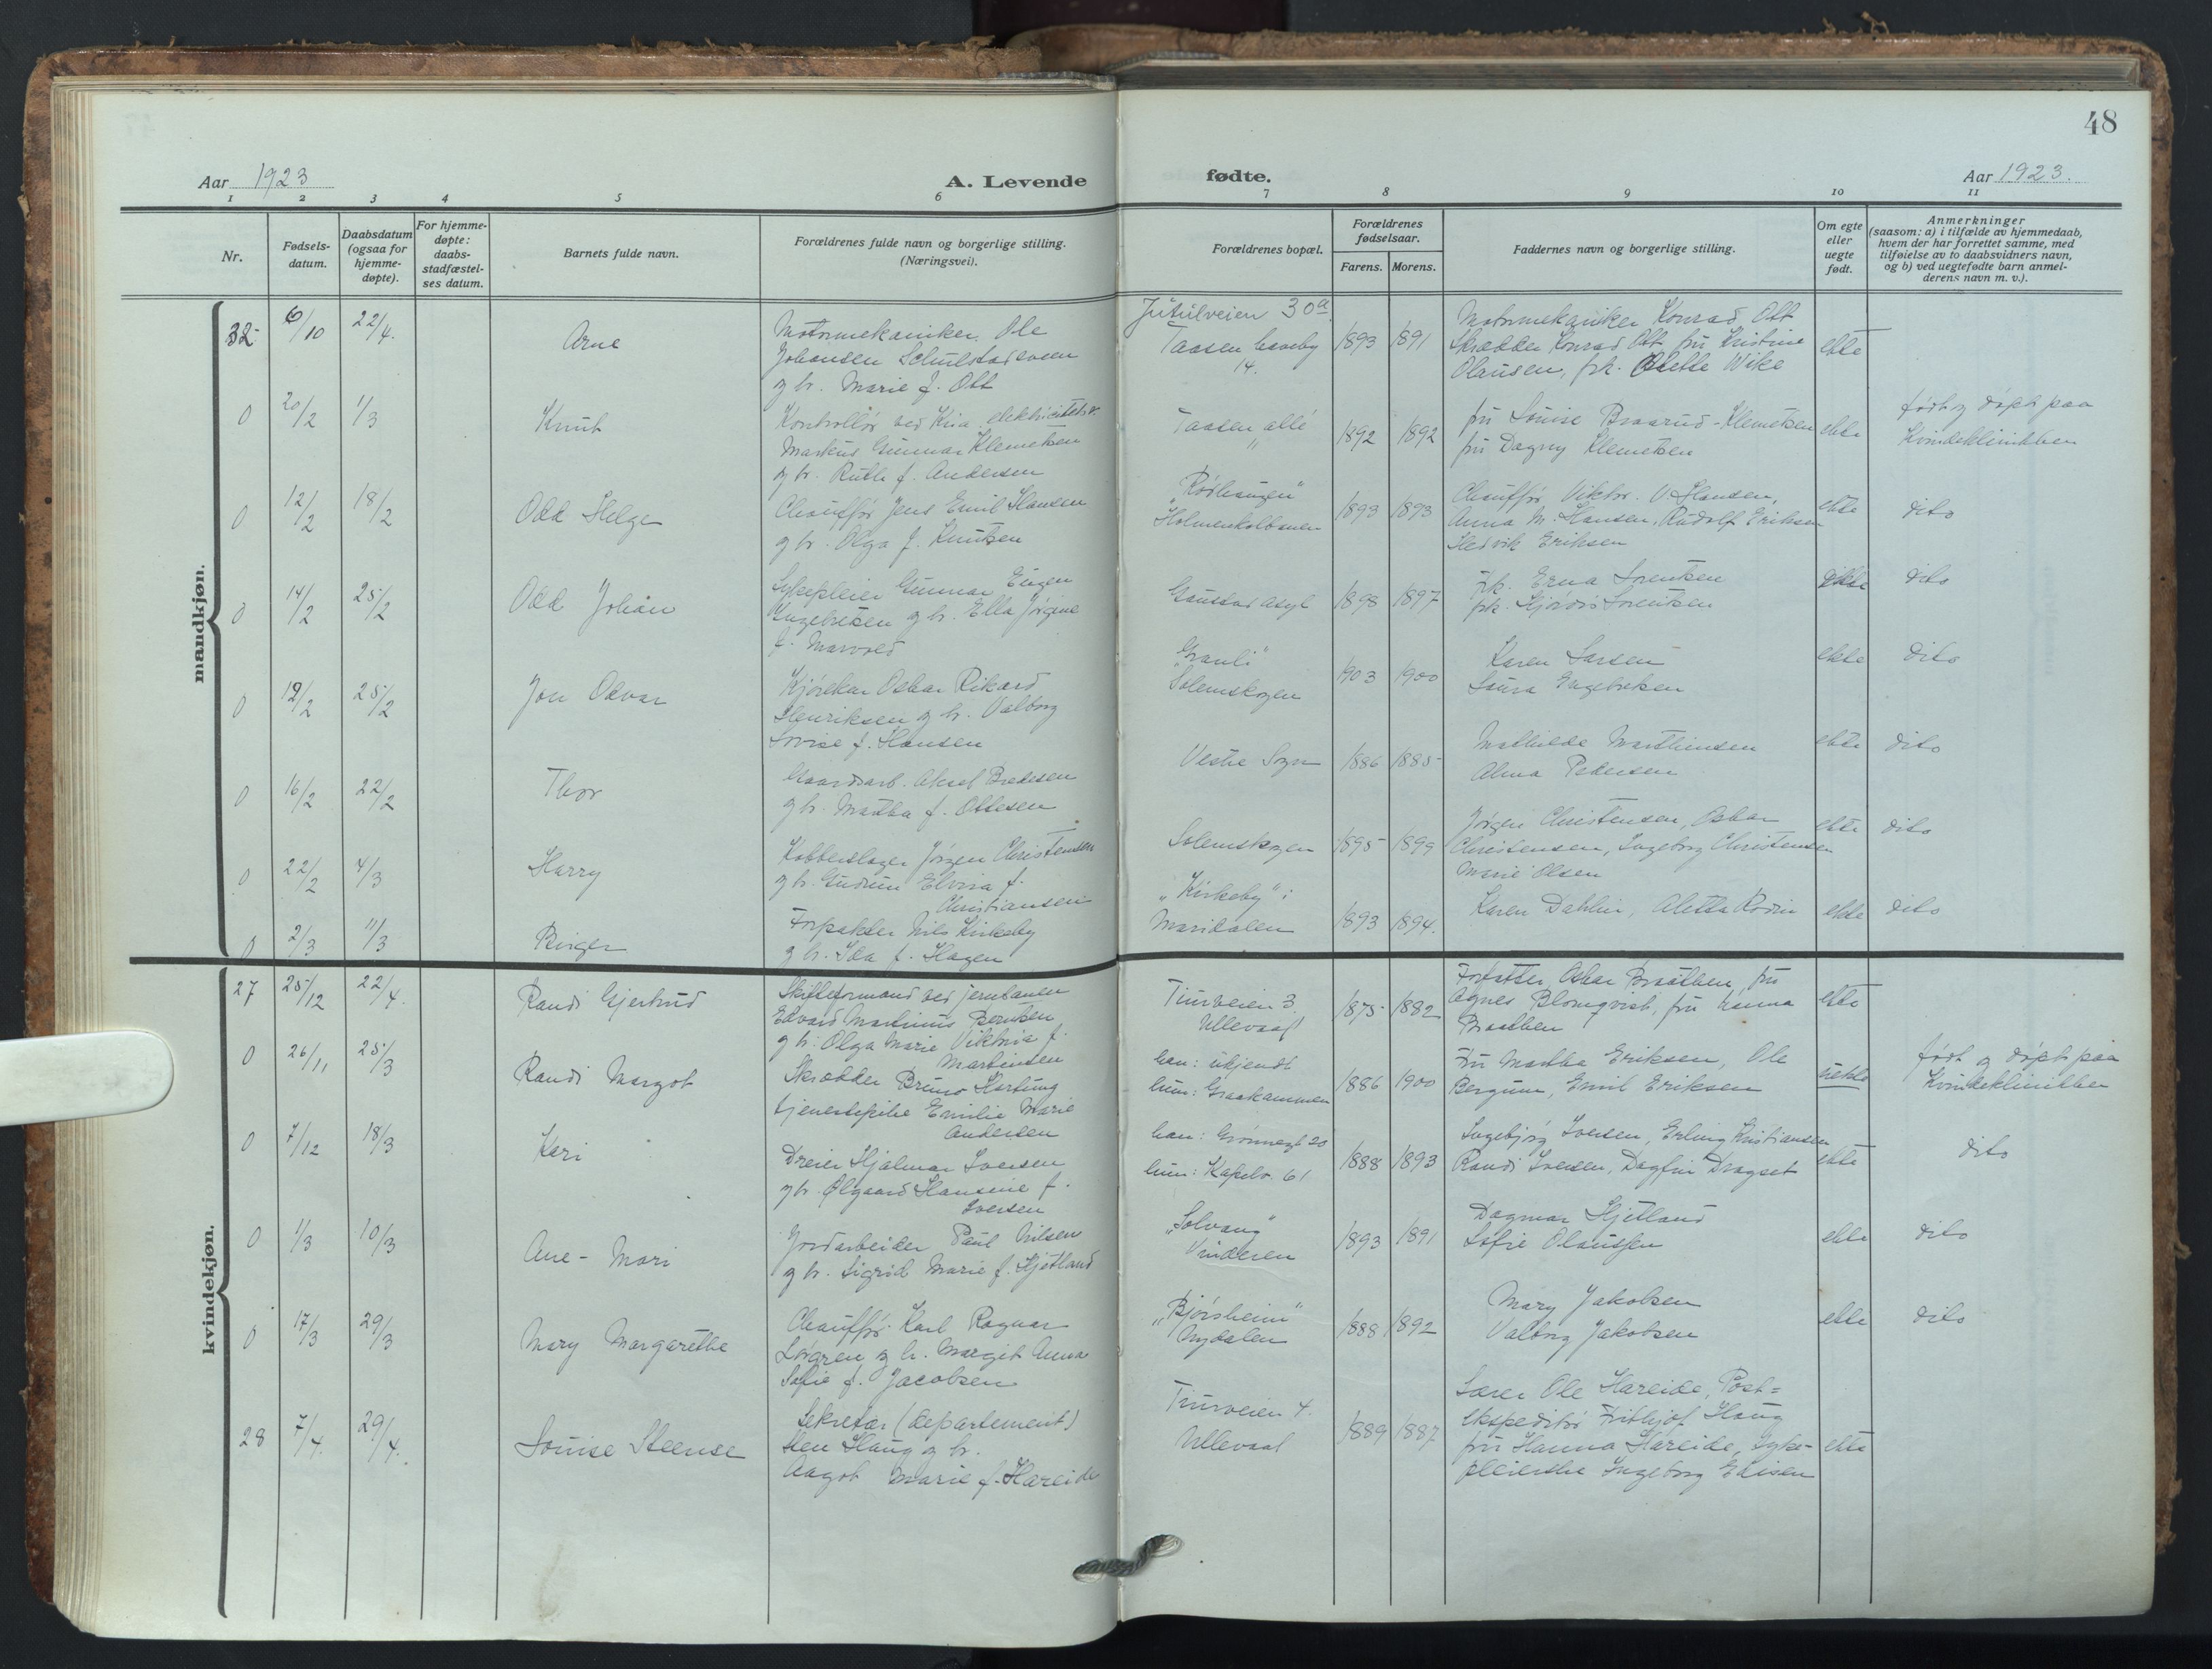 48
Aar 1923
A. Levende
fødte.
Aar 1923.
1 2 3 4 5 6 7 8 9 10 11
Nr.
Fødsels-
datum.
Daabsdatum
(ogsaa for
hjemme-
døpte).
For hjemme-
døpte:
daabs-
stadfæstel-
ses datum.
Barnets fulde navn.
Forældrenes fulde navn og borgerlige stilling.
(Næringsvei).
Forældrenes bopæl.
Forældrenes
fødselsaar.
Farens. Morens.
Faddernes navn og borgerlige stilling.
Om egte
eller
uegte
født.
Anmerkninger
(saasom: a) i tilfælde av hjemmedaab,
hvem der har forrettet samme, med
tilføielse av to daabsvidners navn,
og b) ved uegtefødte barn anmel-
derens navn m. v.).
mandkjøn.
32 6/10 22/4. Arne
Motormekaniker Ole
Johansen Schulstadsveen
g hr. Marie f. Ott
Jutulveien 30a
Taasen haveby
14.
1893 1891
Motormekaniker Konrad Ott
Skrædder Konrad Ott fru Kristine
Olausen, frk. Olette Wike
ekte
0 20/2 1/3 Knut
Kontrollør ved Kria. elektricitetsv.
Markus Gunnar Klemetsen
g hr. Ruth f. Andersen
Taasen allé
1892 1892
fru Louise Braarud-Klemetsen
fru Dagny Klemetsen
ekte
født og døpt paa
Kvindeklinikken
0 12/2 18/2 Odd Helge
Chauffør Jens Emil Hansen
g hr. Olga f. Knutsen
"Rødhaugen"
Holmenkolbanen
1893 1893
Chauffør Viktor V. Hansen,
Anna M. Hansen, Rudolf Eriksen
Hedvik Eriksen
ekte
dito
0 14/2 25/2 Odd Johan
Sykepleier Gunnar Eugen
Yngebretsen g hr. Ella Jørgine
f. Marvold
Gaustad Asyl
1898 1897
Frk. Erna Lorentsen
frk. Hjørdis Lorentsen
ekte
dito
0 19/2 25/2 Jon Odvar
Kjørekar Oskar Rikard
Henriksen g hr. Valborg
Lovise f. Hansen
"Granli"
Solemskogen
1903 1900
Karen Larsen
Laura Engebretsen
ekte
dito
0 16/2 22/2 Thor
Gaardsarb. Aksel Bredesen
g hr. Martha f. Ottesen
Vestre Sogn
1886 1885
Mathilde Marthinsen
Alma Pedersen
ekte
dito
0 22/2 4/3 Harry
Kobberslager Jørgen Christensen
g hr. Gudrun Elvira f.
Christiansen
Solemskogen
1895 1899
Jørgen Christensen, Oskar
Christensen, Ingeborg Christensen
Marie Olsen
ekte
dito
0 2/3 11/3 Birger
Forpakter Nils Kirkeby
g hr. Ida f. Hagen
"Kirkeby" i
Maridalen
1893 1894.
Karen Dahlin, Aletta Rodin
ekte
dito
kvindekjøn.
27 25/12 22/4. Randi Gjertrud
Skifteformand ved jernbanen
Edvard Martinius Berntsen
g hr. Olga Marie Viktoria f.
Martinsen
Tiurveien 3.
Ullevaal
1875 1882
Forfatter Oskar Braathen, fru
Agnes Blomqvist, fru Hanna
Braathen
ekte
0 26/11 25/3 Randi Margot
Skrædder Bruno Hartung
tjenestepike Emilie Marie
Andersen
han: ukjendt
hun: Graakammen
1886 1900
Fru Martha Eriksen, Ole
Bergum, Emil Eriksen
uekte
født og døpt paa
Kvindeklinikken
0 7/12 18/3 Kari
Dreier Hjalmar Iversen
g hr. Olgaard Hansine f.
Iversen
han: Grønnegt 20
hun: Kapelv. 61
1888 1893
Ingebjørg Iversen, Erling Kristiansen
Randi Iversen, Dagfin Dragset
ekte
dito
0 1/3 10/3 Ane-Mari
Jordarbeider Paul Nilsen
g hr. Sigrid Marie f. Hjetland
"Solvang"
Vinderen
1893 1891
Dagmar Hjetland
Sofie Olaussen
ekte
dito
0 17/3 29/3 Mary Margarethe
Chauffør Karl Ragnar
Løvaren g hr. Margit Anna
Sofie f. Jacobsen
"Bjørsheim"
Nydalen
1888 1892
Mary Jakobsen
Valborg Jakobsen
ekte
dito
28 7/4. 29/4. Louise Steense
Sekretær (departement)
Sten Haug g hr.
Aagot Marie f. Hareide
Tiurveien 4.
Ullevaal
1889 1887
Lærer Ole Hareide, Post=
ekspeditør Frithjof Haug
fru Hanna Hareide, syke-
pleierske Ingeborg Edisen
ekte